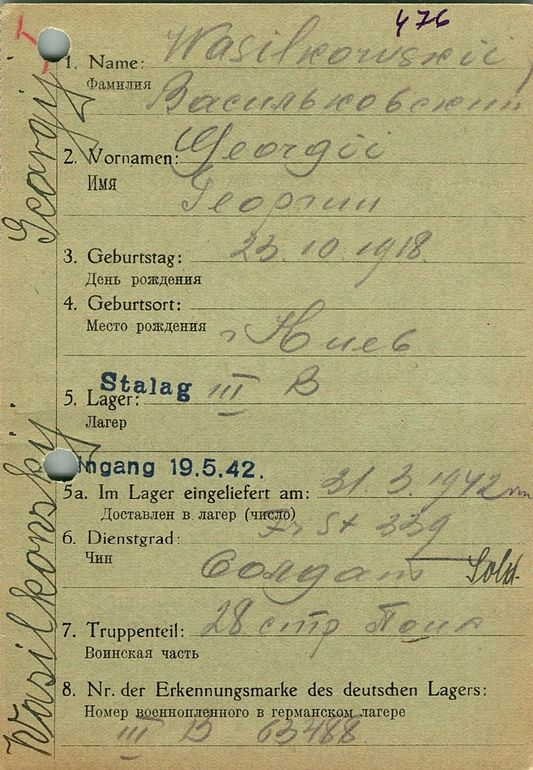 476
1. Name: Wasilkowskii
Фамилия Васильковский
2. Vornamen: Georgii
Имя Георгий
3. Geburtstag: 23.10.1918.
День рождения
4. Geburtsort:
Место рождения г Киев
5. Lager: Stalag III B
Лагер
Eingang 19.5.42.
5a. Im Lager eingeliefert am: 31.3.1942 von
Доставлен в лагер (число) Fr St 339
6. Dienstgrad:
Чин Солдат Sold.
7. Truppenteil: 28 стр Полк
Воинская часть
8. Nr. der Erkennungsmarke des deutschen Lagers:
Номер военнопленного в германском лагере
III B 63488
Wasilkowskij Georgij